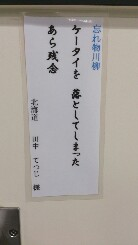 忘れ物川柳
ケータイを 落としてしまった
あら残念
北海道
田中 てつじ 様